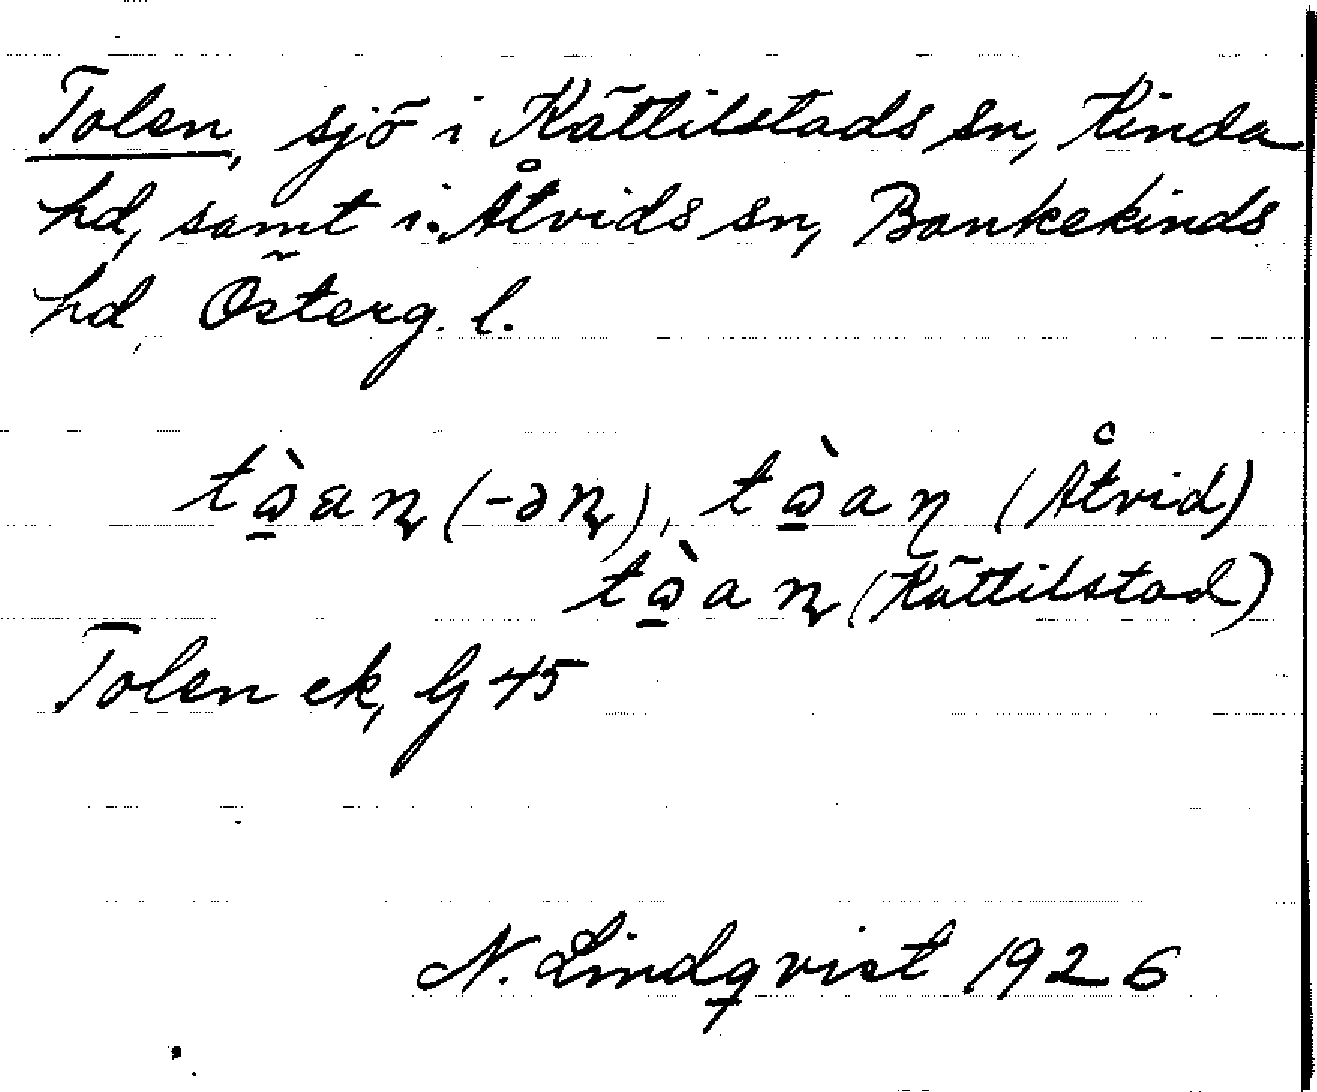 Tolen, sjö i Kättilstads sn, Kinda
hd, samt i Åtvids sn, Bankekinds
hd, Österg. l.
(Åtvid)
(Kättilstad)
Tolen ek, G 45
N. Lindqvist 1926